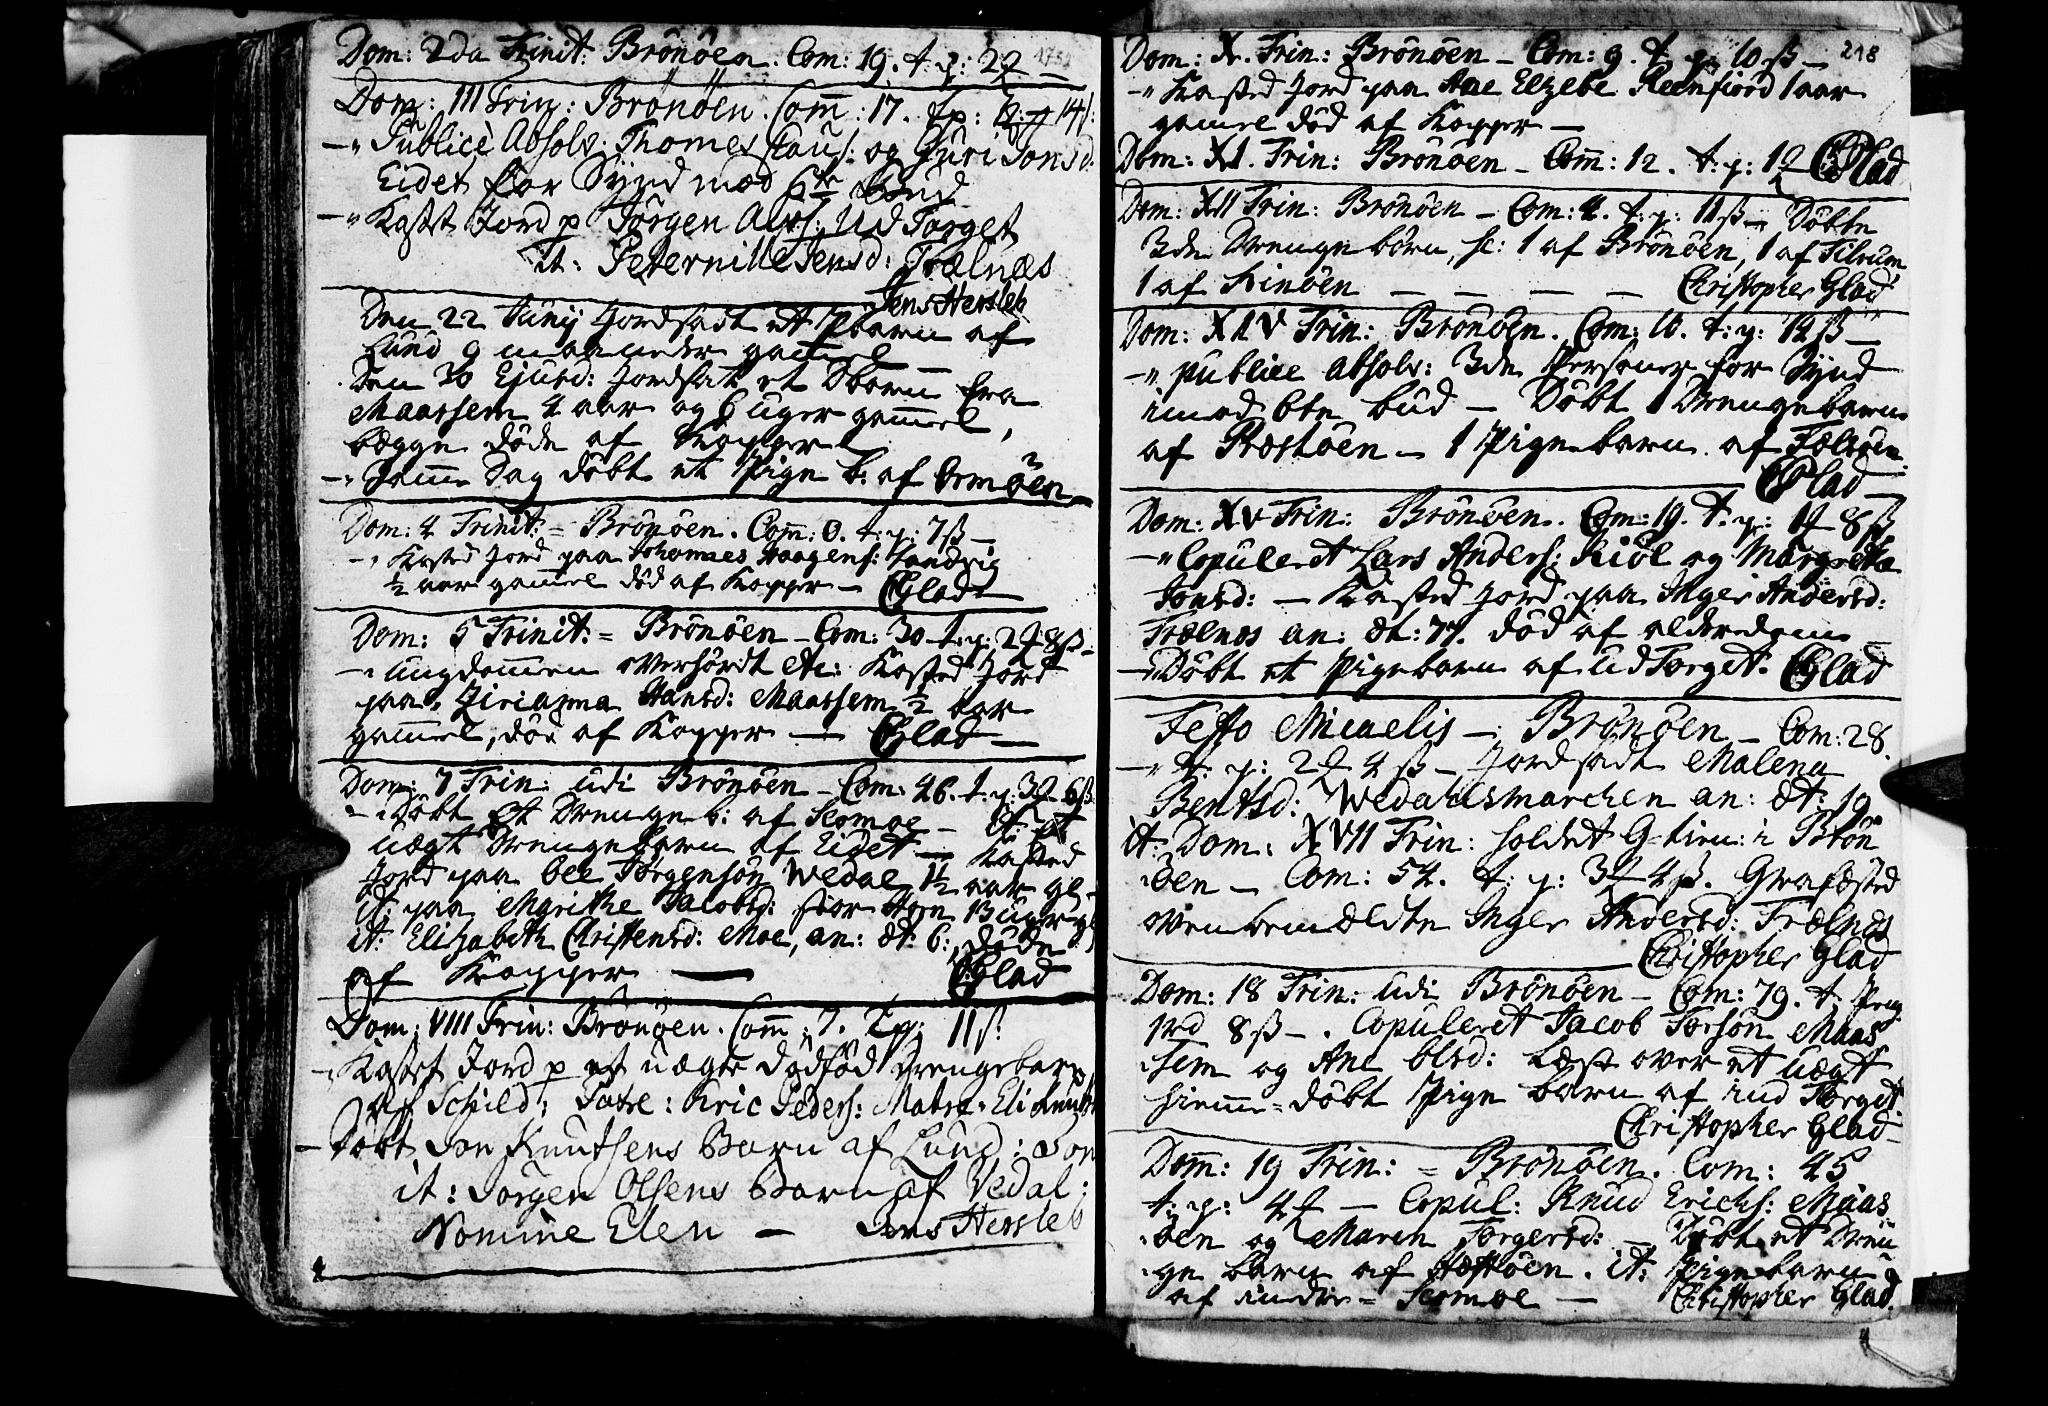 Dom: 2da Trinit: Brönöen. Com: 19. t: p: 22
Dom: III Trin: Brönöen. Comm: 17. tp: 14ß:
-" Publicè Absolv: Thomes Claus: og Guri Jonsd:
Eidet for Synd mod 6te bud
-" Kastet Jord p Jörgen Ud Torget
it: Peternille Jensd: Trælnæs
Jens Hersleb
Den 22 Junij Jordsadt et Pbarn af
Lund 9 maaneder gammel
Den 30 Ejusd: Jordsat et Dbarn fra
Maarsem 4 aar og 6 uger gammel,
begge döde af Kopper
-" Samme Dag döbt et Pige b: af Ormöen
Dom: 4 Trinit: = Brönöen. Comm: 0. t: p: 7ß
-" Kasted Jord paa Johannes Haagens: Tandrig
½ aar gammel död af Kopper — CGlad
Dom: 5 Trinit: = Brönöen - Com: 30 t: p: 2 8ß
-" ungdommen overhördt etc: Kasted Jord
paa Hansd: Maarsem ½ aar
gammel, död af Kopper — CGlad
Dom: 7 Trin: udi Brönöen - Com: 46. t: p: 3 6ß
-" Döbt et Drenge b: af Sromoe - it: et
uægt Drengebarn af Eidet - Kasted
Jord paa Ole Jörgensön Wedal 1½ aar gl -
it: paa Mgrethe Jacobsd: stor 13 uger gl
it: Elisabeth Christensd: Moe, an: æt: 6: döde
af Kopper — CGlad
Dom: VIII Trin: Brönöen. Comm: 7. Tp: 11ß
-" Kastet Jord p et uægte dödfód drengebarn
af Schild: Patre: Eric Peders: Matre: Eli
- Döbt Jon Knutsens Barn af Lund: Jon
it: Jörgen Olsens Barn af Vedal:
Nomine Elen — Jens Hersleb
218
Dom: X. Trin: Brönöen - Com: 9. t: p: 10ß
-" Kasted Jord paa Ane Elzebe Reenfiord 1 aar
gamel död af Kopper —
Dom: XI. Trin: Brönöen - Comm: 12. t: p: CGlad
Dom: XII Trin: Brönöen - Com: 4. t: p: 11ß - Döbte
3de Drenge börn, sc: 1 af Brönöen, 1 af Tilrum
1 af Hinöen - - - - Christopher Glad
Dom: XIV Trin: Brönöen. Com: 10. t: p: 12ß
-" publice absolv: 3de Personer for Synd
imod 6te bud — Döbt 1 Drengebarn
af Ræstöen - 1 Pigebarn af
CGlad
Dom: XV Trin: Brönöen. Com: 19. t: p: 1 8ß
-" Copuleret Lars Anders: Kiöl og Margrethe
Jonsd: - Kasted Jord paa Inger Andersd:
Trælnes an: æt: 77. död af alderdom -
- Döbt et Pigebarn af Ud Torget: CGlad
Festo Micaelis - Brönöen - Com: 28.
-" t: p: 2 4ß - Jordsadt Malena
Bentsd: Wedahlsmarchen an: æt: 19
it: Dom: XVII Trin: holdet G-tien: i Brön
öen - Com: 54. t: p: 3 4ß. Grafæsted
ovenbemældte Inger Andersd: Trælnes
Christopher Glad
Dom: 18 Trin: udi Brönöen - Com: 79. t: Peng
1rd 8ß - . Copuleret Jacob Torsön Maar
sem og Ane Olsd: Læst over et uægt
hiemme-döbt Pige barn af ind Torget
Christopher Glad
Dom: 19 Trin: = Brönöen. Com: 45
t: p: 4 - Copul: Knud Erichs: Maas
öen og Maren Torgersd: - Döbt et Dren
ge barn af Hestöen. it: Pigebarn
af indre - Sromoe - Christopher Glad.